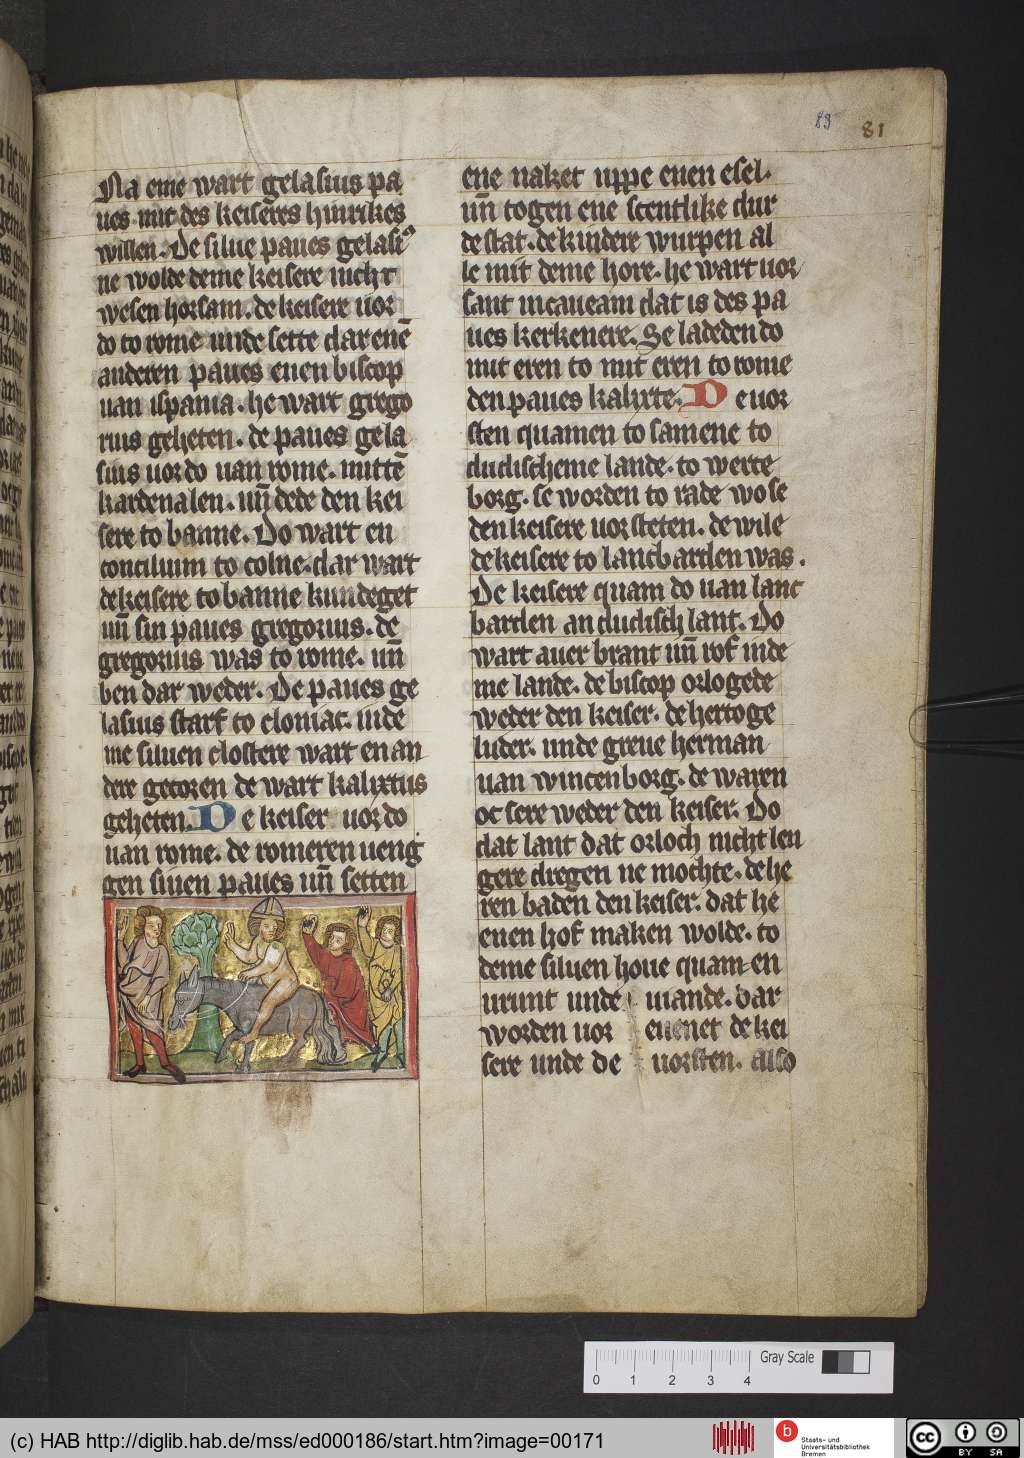 83 81
Na eme wart gelasius pa
ues mit des keiseres hinrikes
willen. De silue paues gelasi⁹
ne wolde deme keisere nicht
wesen horsam. de keisere uor
do to rome unde sette dar enē
anderen paues enen biscop
uan ispania. he wart grego
rius geheten. de paues gela
sius uor do uan rome. mittē
kardenalen. uñ dede den kei
sere to banne. Do wart en
concilium to colne. dar wart
de keisere to banne kundeget
uñ sin paues gregorius. de
gregorius was to rome. uñ
ben dar weder. De paues ge
lasius starf to cloniac. inde
me siluen clostere wart en an
dere gecoren de wart kalixtus
geheten. De keiser uor do
uan rome. de romeren ueng
gen sinen paues uñ setten
ene naket uppe enen esel.
uñ togen ene scentlike dur
de stat. de kindere wurpen al
le mit deme hore. he wart uor
sant incaueam dat is des pa
ues kerkenere. Se ladeden do
mit eren to mit eren to rome
den paues kalixte. De uor
sten quamen to samene to
dudischeme lande. to werte
borg. se worden to rade wo se
den keisere uorsteten. de wile
de keisere to lancbarden was.
De keisere quam do uan lanc
barden an dudisch lant. Do
wart auer brant uñ rof inde
me lande. de biscop orlogede
weder den keiser. de hertoge
luder. unde greue herman
uan wincenborg. de waren
oc sere weder den keiser. Do
dat lant dat orloch nicht len
gere dregen ne mochte. de he
ren baden den keiser. dat he
enen hof maken wolde. to
deme siluen houe quamen
urunt unde uiande. dar
worden uor euenet de kei
sere unde de uorsten. also
0 1 2 3 4
Gray Scale
(c) HAB http://diglib.hab.de/mss/ed000186/start.htm?image=00171
b
Staats- und
Universitätsbibliothek
Bremen
cc
BY SA